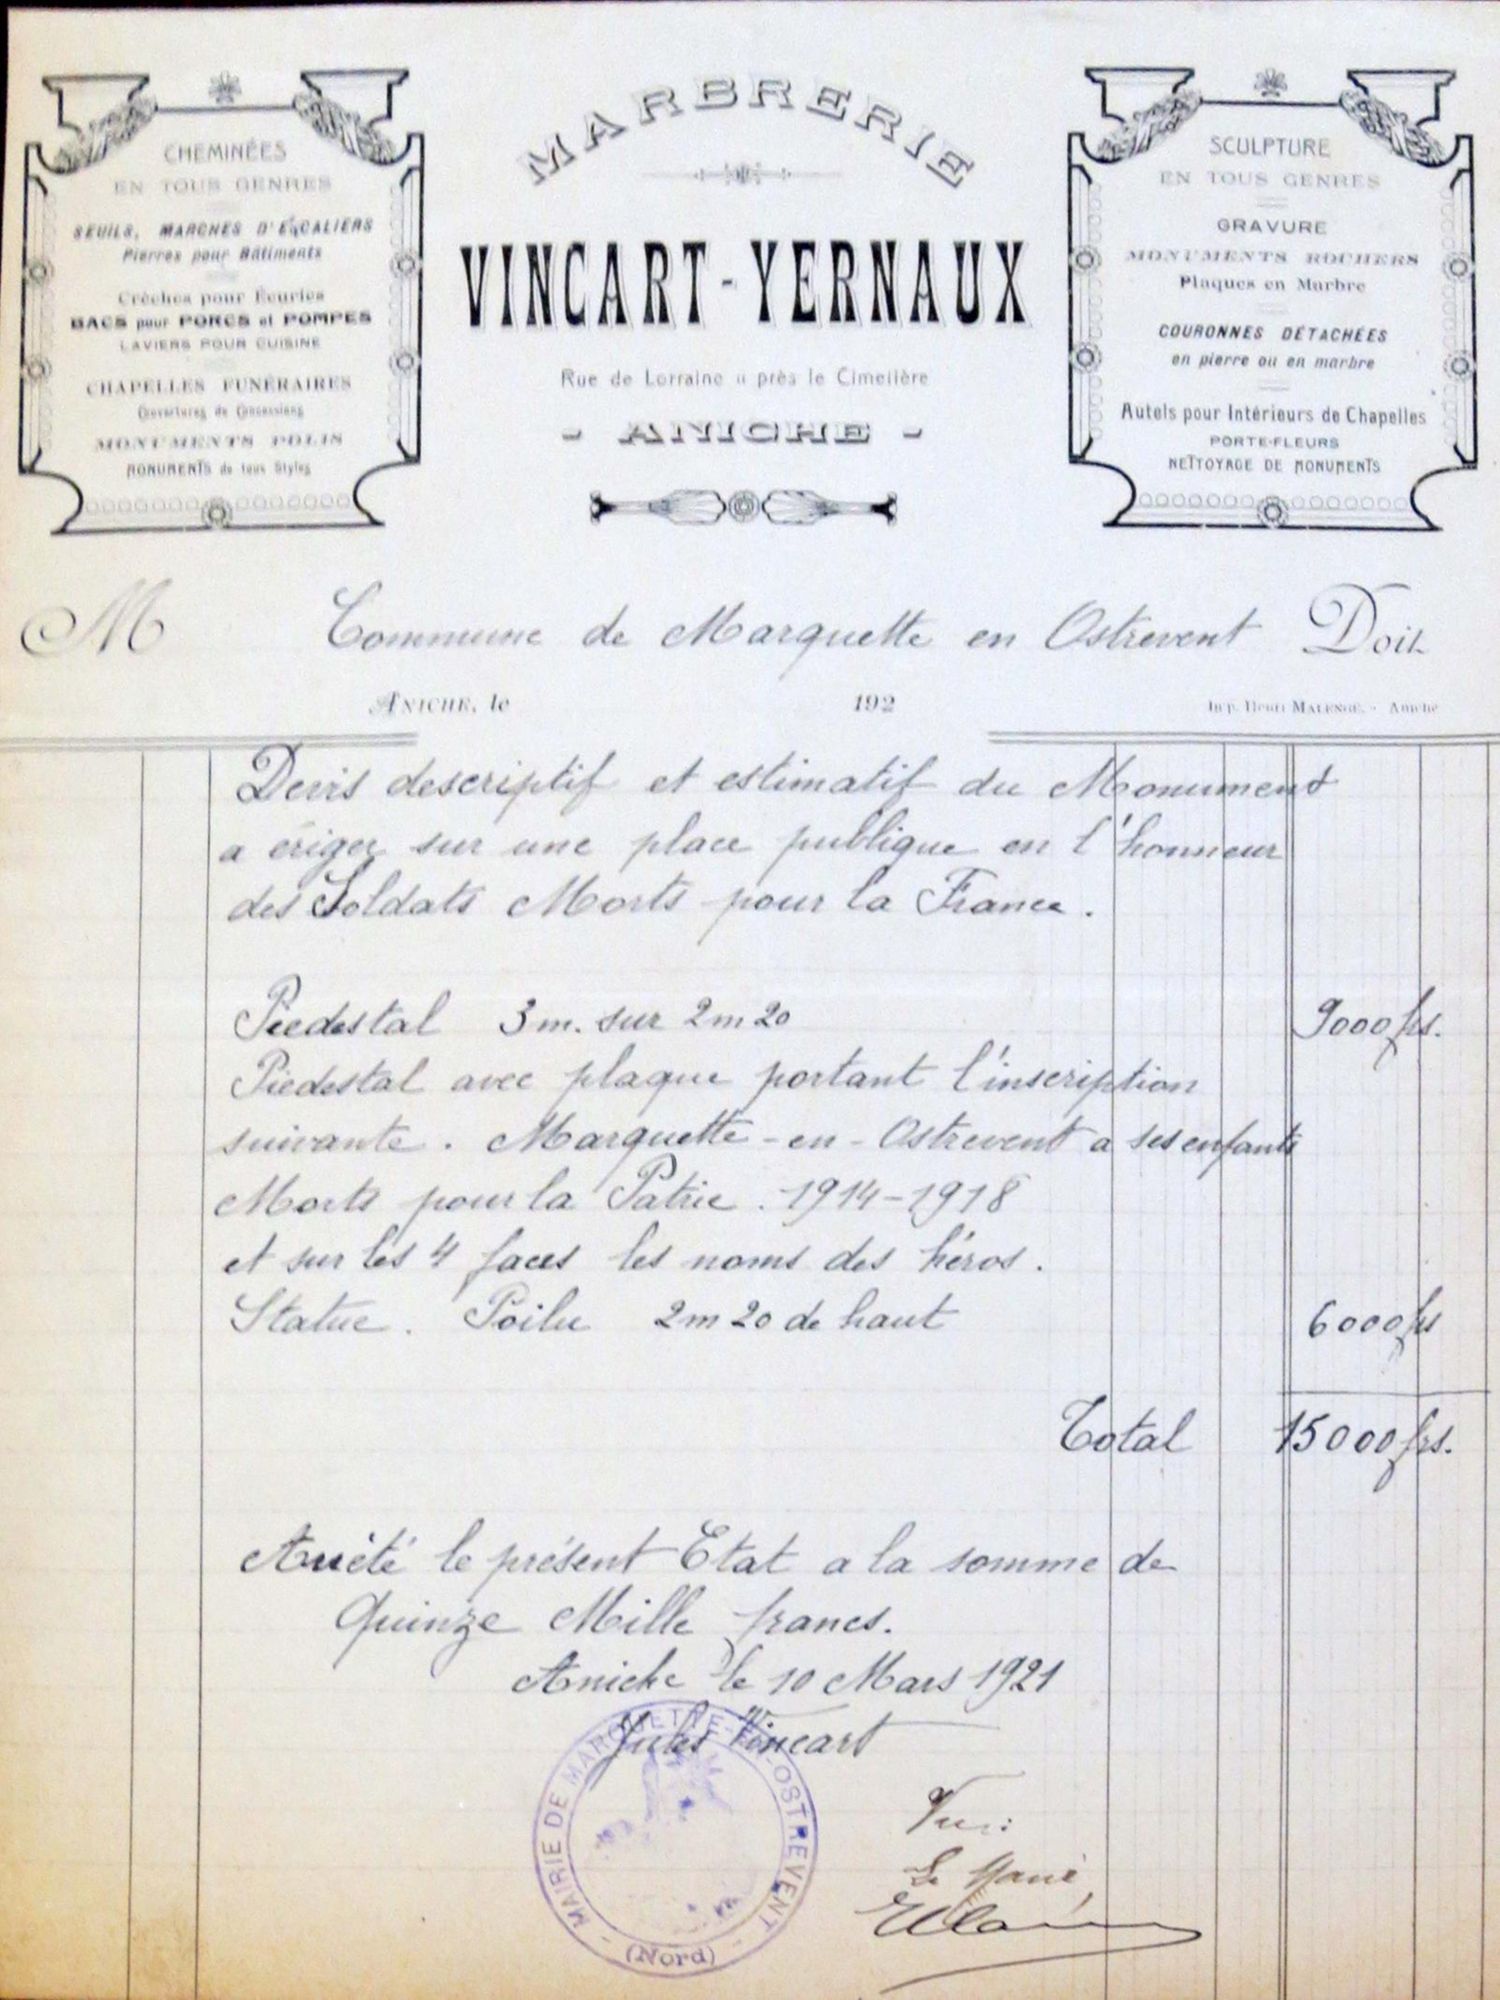 CHEMINÉES
EN TOUS GENRES
SEUILS, MARCHES D'ESCALIERS
Pierres pour Bâtiments
Crèches pour Écuries
BACS pour PORCS et POMPES
LAVIERS POUR CUISINE
CHAPELLES FUNÉRAIRES
Couvertures de Concessions
MONUMENTS POLIS
MONUMENTS de tous Styles
MARBRERIE
VINCART-YERNAUX
Rue de Lorraine près le Cimetière
- ANICHE -
SCULPTURE
EN TOUS GENRES
GRAVURE
MONUMENTS ROCHERS
Plaques en Marbre
COURONNES DÉTACHÉES
en pierre ou en marbre
Autels pour Intérieurs de Chapelles
PORTE-FLEURS
NETTOYAGE DE MONUMENTS
M Commune de Marquette en Ostrevent Doit
ANICHE, le 192
Imp. Henri - Aniche
Devis descriptif et estimatif du Monument
a eriger sur une place publique en l'honneur
des Soldats Morts pour la France.
Piedestal 3m. sur 2m20 9000 frs.
Piedestal avec plaque portant l'inscription
suivante. Marquette-en-Ostrevent a ses enfants
Morts pour la Patrie. 1914-1918
et sur les 4 faces les noms des héros.
Statue. Poilu 2m20 de haut 6000 frs
Total 15000 frs.
Arrêté le présent Etat a la somme de
Quinze Mille francs.
Aniche le 10 Mars 1921
Jules Vincart
MAIRIE DE MARQUETTE-EN-OSTREVENT
(Nord)
Vu:
Le Maire,